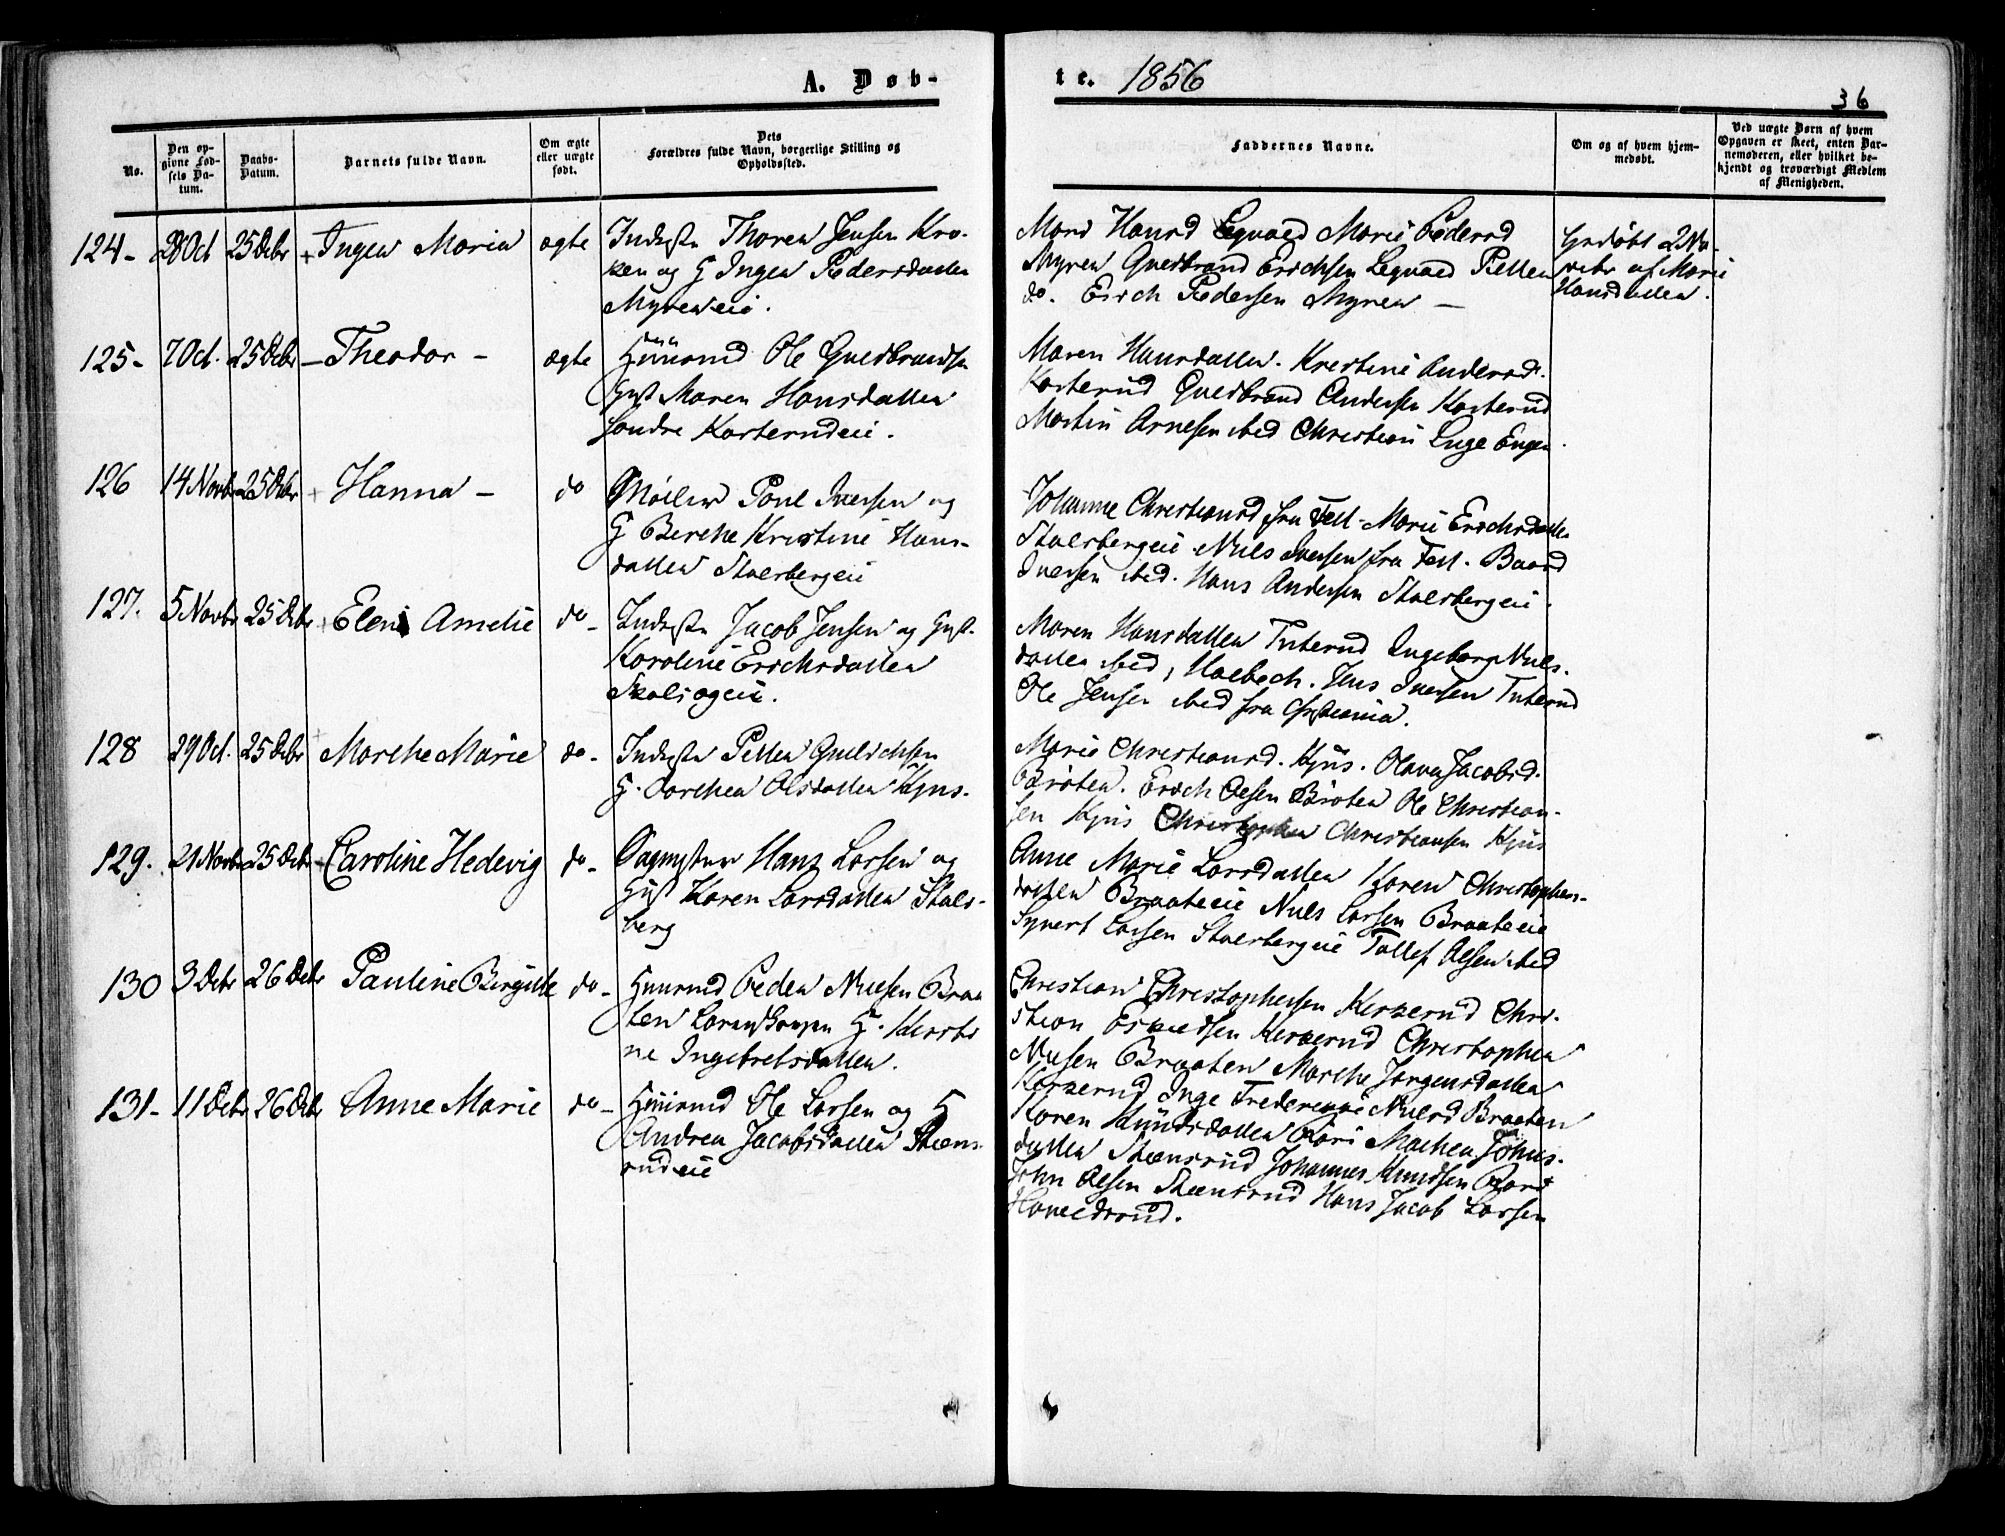 A. Døb-
te. 1856
36
No.
Den op-
givne Fød-
sels Da-
tum.
Daabs-
Datum.
Barnets fulde Navn.
Om ægte
eller uægte
født.
Dets
Forældres fulde Navn, borgerlige Stilling og
Opholdssted.
Faddernes Navne.
Om og af hvem hjem-
medøbt.
Ved uægte Børn af hvem
Opgaven er skeet, enten Bar-
nemoderen, eller hvilket be-
kjendt og troværdigt Medlem
af Menigheden.
124- 28 Oct 25 Debr + Ingen Maria ægte Inderste Thoren Jensen Kro-
ken og G Ingen Pedersdatter
Myreneie.
Mari Hansd Legvold Marie Pedersd
Myren Guldbrand Erichsen Legvold Petter
do. Erich Pedersen Myren -
Hjdøbt 2 No-
vebr af Marie
Hansdatter.
125- 7 Oct. 25 Debr - Theodor - ægte Huusmd Ole Guldbrandsen
Hust Maren Hansdatter
Søndre Karterudeie.
Maren Hansdatter. Kristine Andersd.
Karterud Guldbrand Andersen Karterud
Martin Arnesen ibid Christian Enge
126 14 Novbr 25 Debr + Hanna - do Møller Poul Iversen og
G Berthe Kristine Hans-
datter Stalsbergeie
Johanne Christiansd fra Fet. Marie Erichsdatter
Stalsbergeie Niels Iversen fra Fet. Baard
Iversen ibid. Hans Andersen Stalsbergeie.
127. 5 Novbr 25 Debr + Eleni Amelie do- Inderste Jacob Jensen og Hust.
Karoline Erichsdatter
Maren Hansdatter Tuterud Ingeborg Niels-
datter ibid, Holbech. Jens Iversen Tuterud
Ole Jensen ibid fra Christiania.
128 29 Oct. 25 Debr + Marthe Marie do- Inderste Petter Gulichsen
G. Dorthea Olsdatter Kjus.
Marie Christiansd. Kjus. Olava Jacobsd.
Bröten. Erich Olsen Bröten Ole Christian-
sen Kjus Christopher Christiansen Kjus
129. 21 Novbr 25 Debr + Caroline Hedevig do- Hans Larsen og
Hust Karen Larsdatter Stals-
berg
Anne Marie Larsdatter Karen Christophers-
datter Braateeie Niels Larsen Braateeie
Syvert Larsen Stalsbergeie Tollef Olsen ibid
130 3 Debr 26 Debr Pauline Birgitte do- Huusmd Peder Nielsen Braa
ten G. Kirsti
ne Ingebretsdatter.
Christian Christophersen Kerzerud Chri-
stian Eskildsen Kerzerud Christopher
Nielsen Braaten Marthe Jørgensdatter
Kerzerud Inge Frederikke Nielsd Braaten
131- 11 Debr 26 Debr Anne Marie do- Huusmd Ole Larsen og H
Andrea Jacobsdatter Steens-
rudeie
Karen Knudsdatter Kari Mathea Johns-
datter Steensrud Johannes Knudsen
John Olsen Steensrud Hans Jacob Larsen